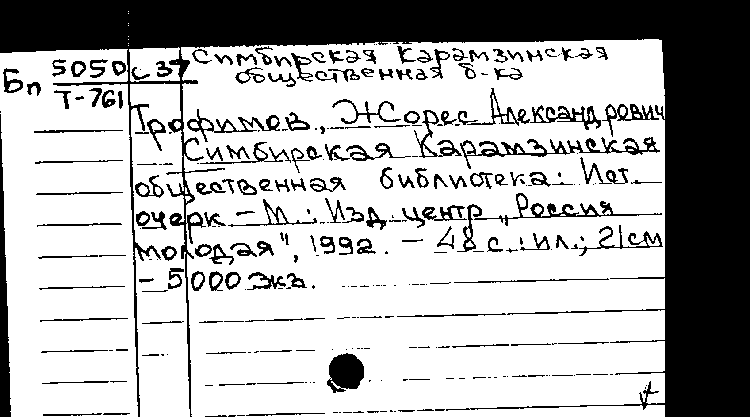 Симбирская Карамзинская
общественная б-ка
Бп 5050с37
Т-761
Трофимов, Жорес Александрович
Симбирская Карамзинская
общественная библиотека: Ист.
очерк - М.: Изд. центр „Россия
молодая", 1992. - 48 с.: ил.; 21см
- 5000 экз.